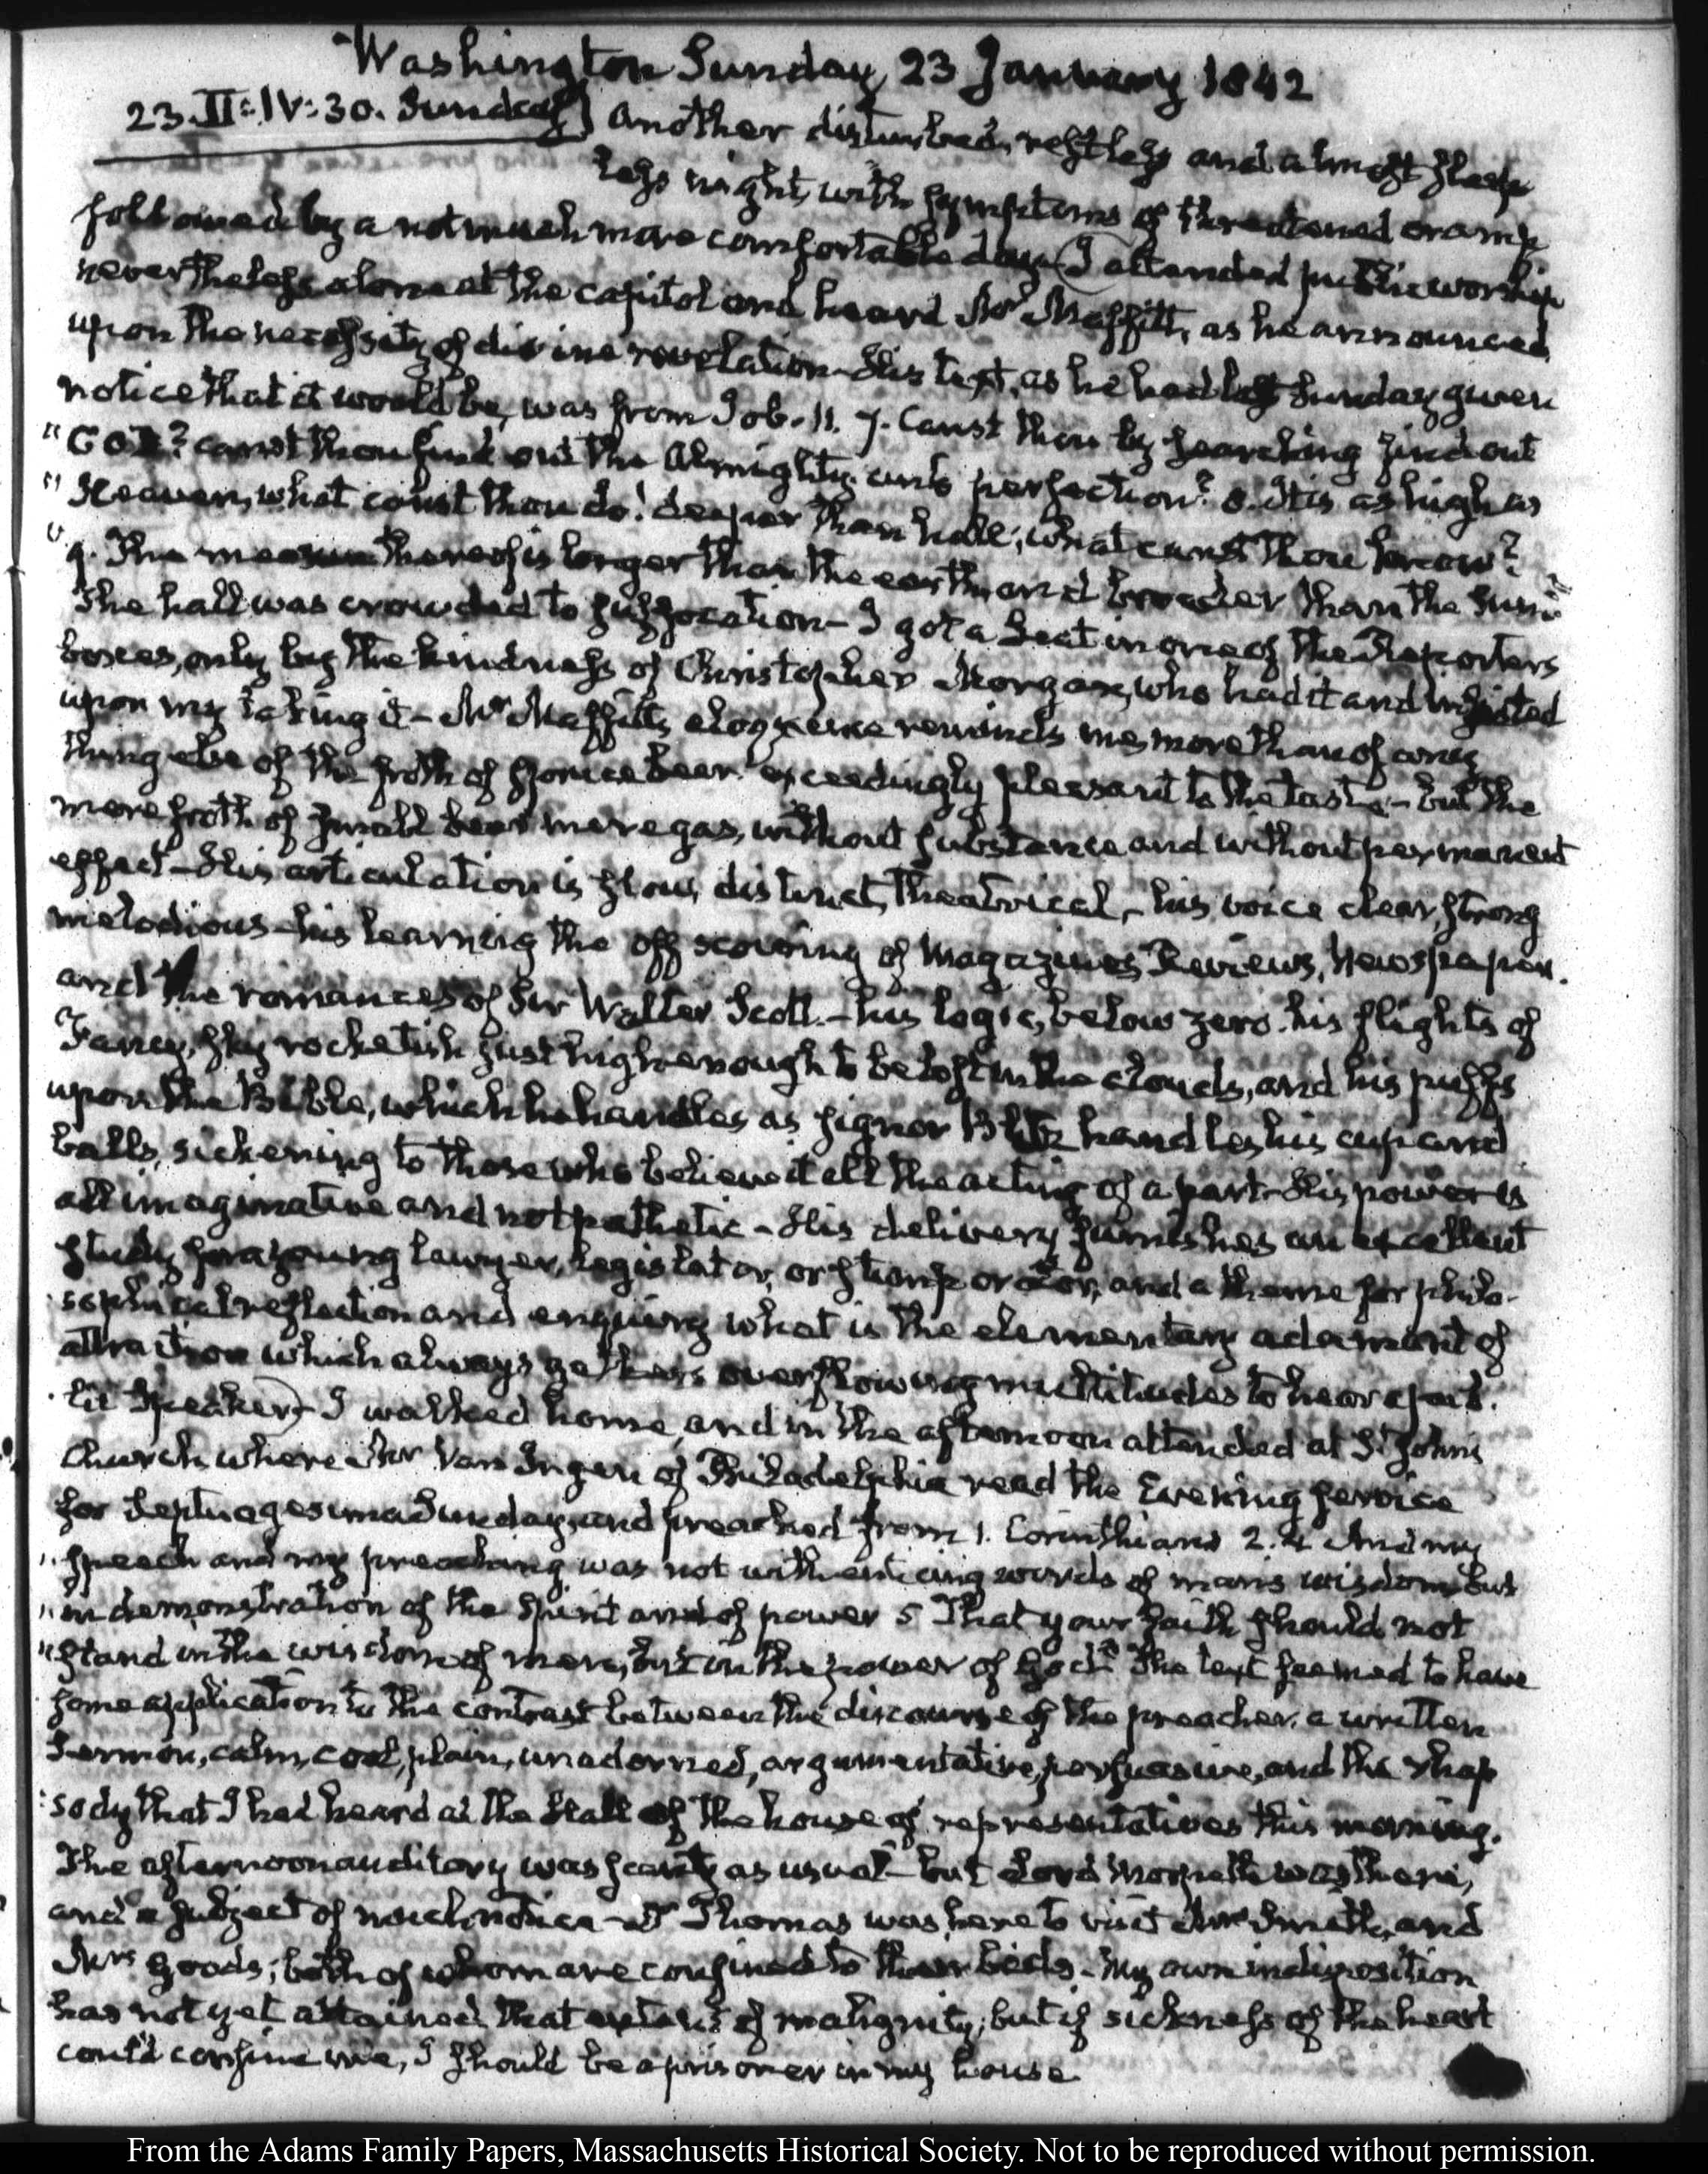 Washington Sunday 23 January 1842
23. II: IV: 30. Sunday] Another disturbed, restless and almost sleep
less night, with symptoms of threatened cramp
followed by a not much more comfortable day. I attended public worship
nevertheless alone at the Capitol and heard Mr Maffitt, as he announced
upon the necessity of divine revelation. His text, as he had last Sunday given
notice that it would be, was from Job. 11. 7. Canst thou by searching find out
"GOD? canst thou find out the Almighty unto perfection? 8. It is as high as
"Heaven, what canst thou do? deeper than hell; what canst thou know?
"9. The measure thereof is longer than the earth, and broader than the sea"
The hall was crowded to suffocation - I got a seat in one of the Reporters
boxes, only by the kindness of Christopher Morgan, who had it and insisted
upon my taking it - Mr Maffitt's eloquence reminds me more than of any
thing else of the froth of spruce beer exceedingly pleasant to the taste - but the
mere froth of small beer mere gas, without substance and without permanent
effect - His articulation is slow, distinct, theatrical, - his voice clear, strong
melodious - his learning the off scouring of Magazines, Reviews, Newspapers.
and the romances of Sir Walter Scott. - his logic, below zero. his flights of
Fancy, sky rocketish just high enough to be lost in the clouds, and his puffs
upon the Bible, which he handles as signor Blitz handles his cup and
balls, sickening to those who believe it all the acting of a part - His power is
all imaginative and not pathetic - His delivery furnishes an excellent
study for a young lawyer, legislator, or stump orator, and a theme for philo-
sophical reflection and enquiry what is the elementary adamant of
attraction which always gathers overflowing multitudes to hear a pub.
lic Speaker) - I walked home, and in the afternoon attended at St Johns
Church, where Mr Van Ingen of Philadelphia read the Evening service
for Septuagesima Sunday, and preached from 1. Corinthians 2. 4 And my
"speech and my preaching was not with enticing words of man's wisdom but
"in demonstration of the Spirit and of power 5 That your faith should not
"stand in the wisdom of men, but in the power of God" The text seemed to have
some application to the contrast between the discourse of the preacher, a written
Sermon, calm, cool, plain, unadorned, argumentative, persuasive, and the rhap
sody that I had heard at the Hall of the house of representatives this morning.
The afternoon auditory was scanty as usual - but Lord Morpeth was there,
and a subject of much notice - Dr Thomas was here to visit Mrs Smith, and
Mrs Goods; both of whom are confined to their beds - My own indisposition
has not yet attained that extent of malignity; but if sickness of the heart
could confine me, I should be a prisoner in my house.
From the Adams Family Papers, Massachusetts Historical Society. Not to be reproduced without permission.